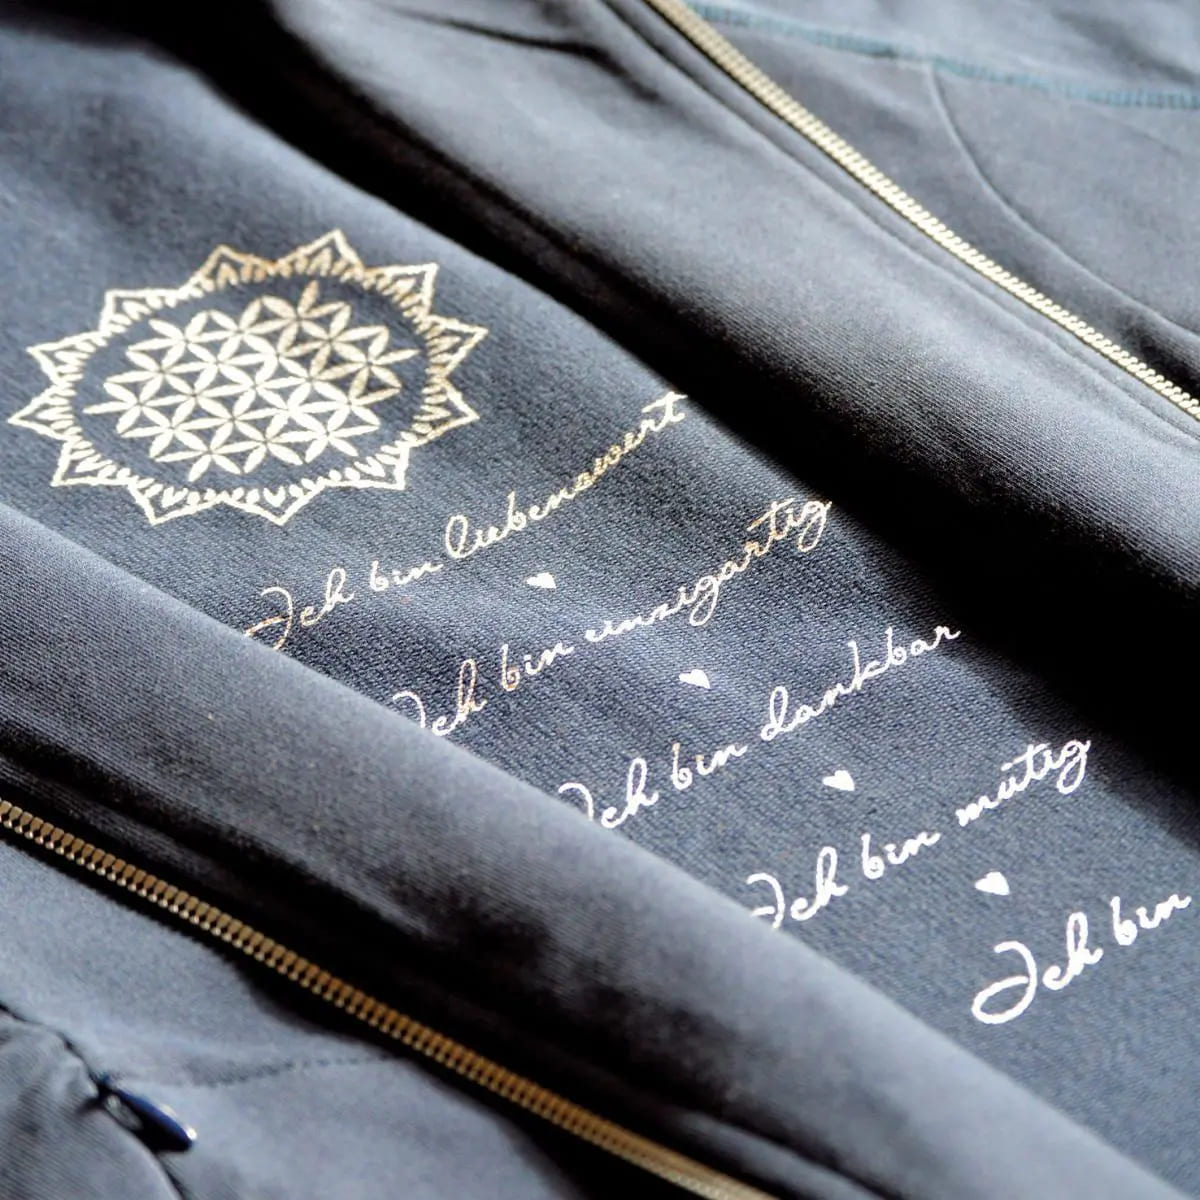 Ich bin liebenswert
Ich bin einzigartig
Ich bin dankbar
Ich bin mutig
Ich bin